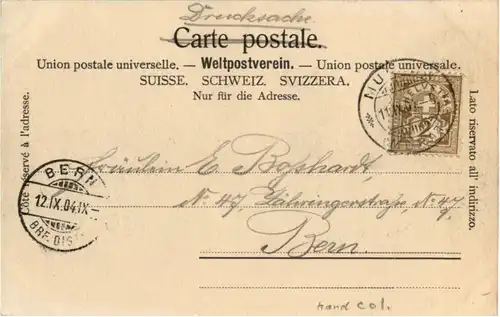 Drucksache
Carte postale.
Union postale universelle. — Weltpostverein. — Union postale universale.
SUISSE. SCHWEIZ. SVIZZERA.
Nur für die Adresse.
Côté réservé à l'adresse.
Lato riservato all' indirizzo.
HELVETIA
2
BERN
12.IX.04.IX
BRF. DIS
Fräulein E. Boßhardt,
No 47 Zähringerstraße, No 47,
Bern.
hand col.